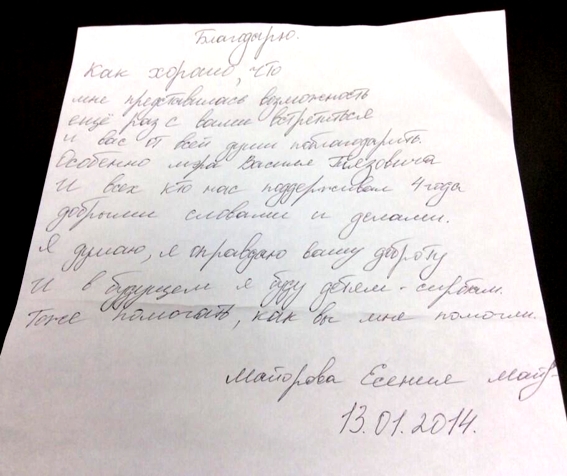 Благодарю.
Как хорошо, что
мне представилась возможность
ещё раз с вами встретиться
и вас от всей души поблагодарить.
Особенно мэра Василья
И всех кто нас поддерживал 4 года
добрыми словами и делами.
Я думаю, я оправдаю вашу доброту
И в будущем я буду детям-сиротам.
Тоже помогать, как вы мне помогли.
Майорова Есения
13.01.2014.